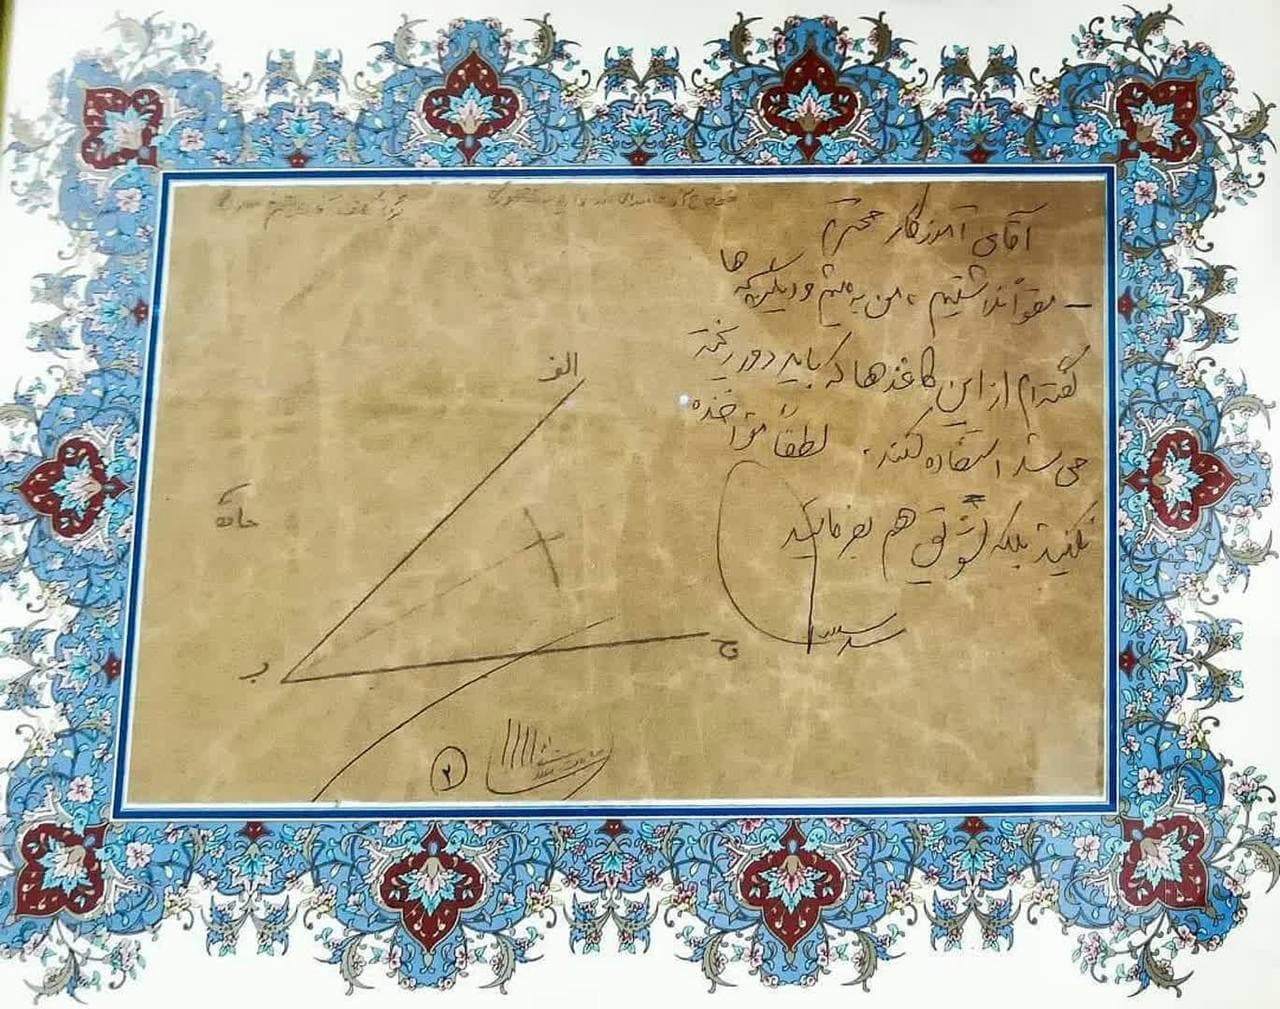 آقای آموزگار محترم
- مقوا نداشتیم، من به میثم و دیگر بچه‌ها
گفته‌ام از این کاغذها که باید دور ریخته
می‌شد استفاده کنند. لطفاً مؤاخذه
نکنید بلکه تشویق هم بفرمایید
الف
ب
ج
۲